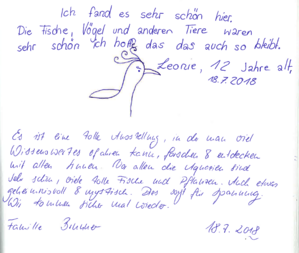 Ich fand es sehr schön hier.
Die Fische, Vögel und anderen Tiere waren
sehr schön ich hoffe das das auch so bleibt.
Leonie, 12 Jahre alt,
18.7.2018
Es ist eine tolle Ausstellung, in der man viel
Wissenswertes erfahren kann, forschen & entdecken
mit allen Sinnen. Vor allem die Aquarien sind
sehr schön, viele tolle Fische und Pflanzen. Auch etwas
geheimnisvoll & mystisch. Das sorgt für Spannung
Wir kommen sicher mal wieder.
Familie 18.7.2018